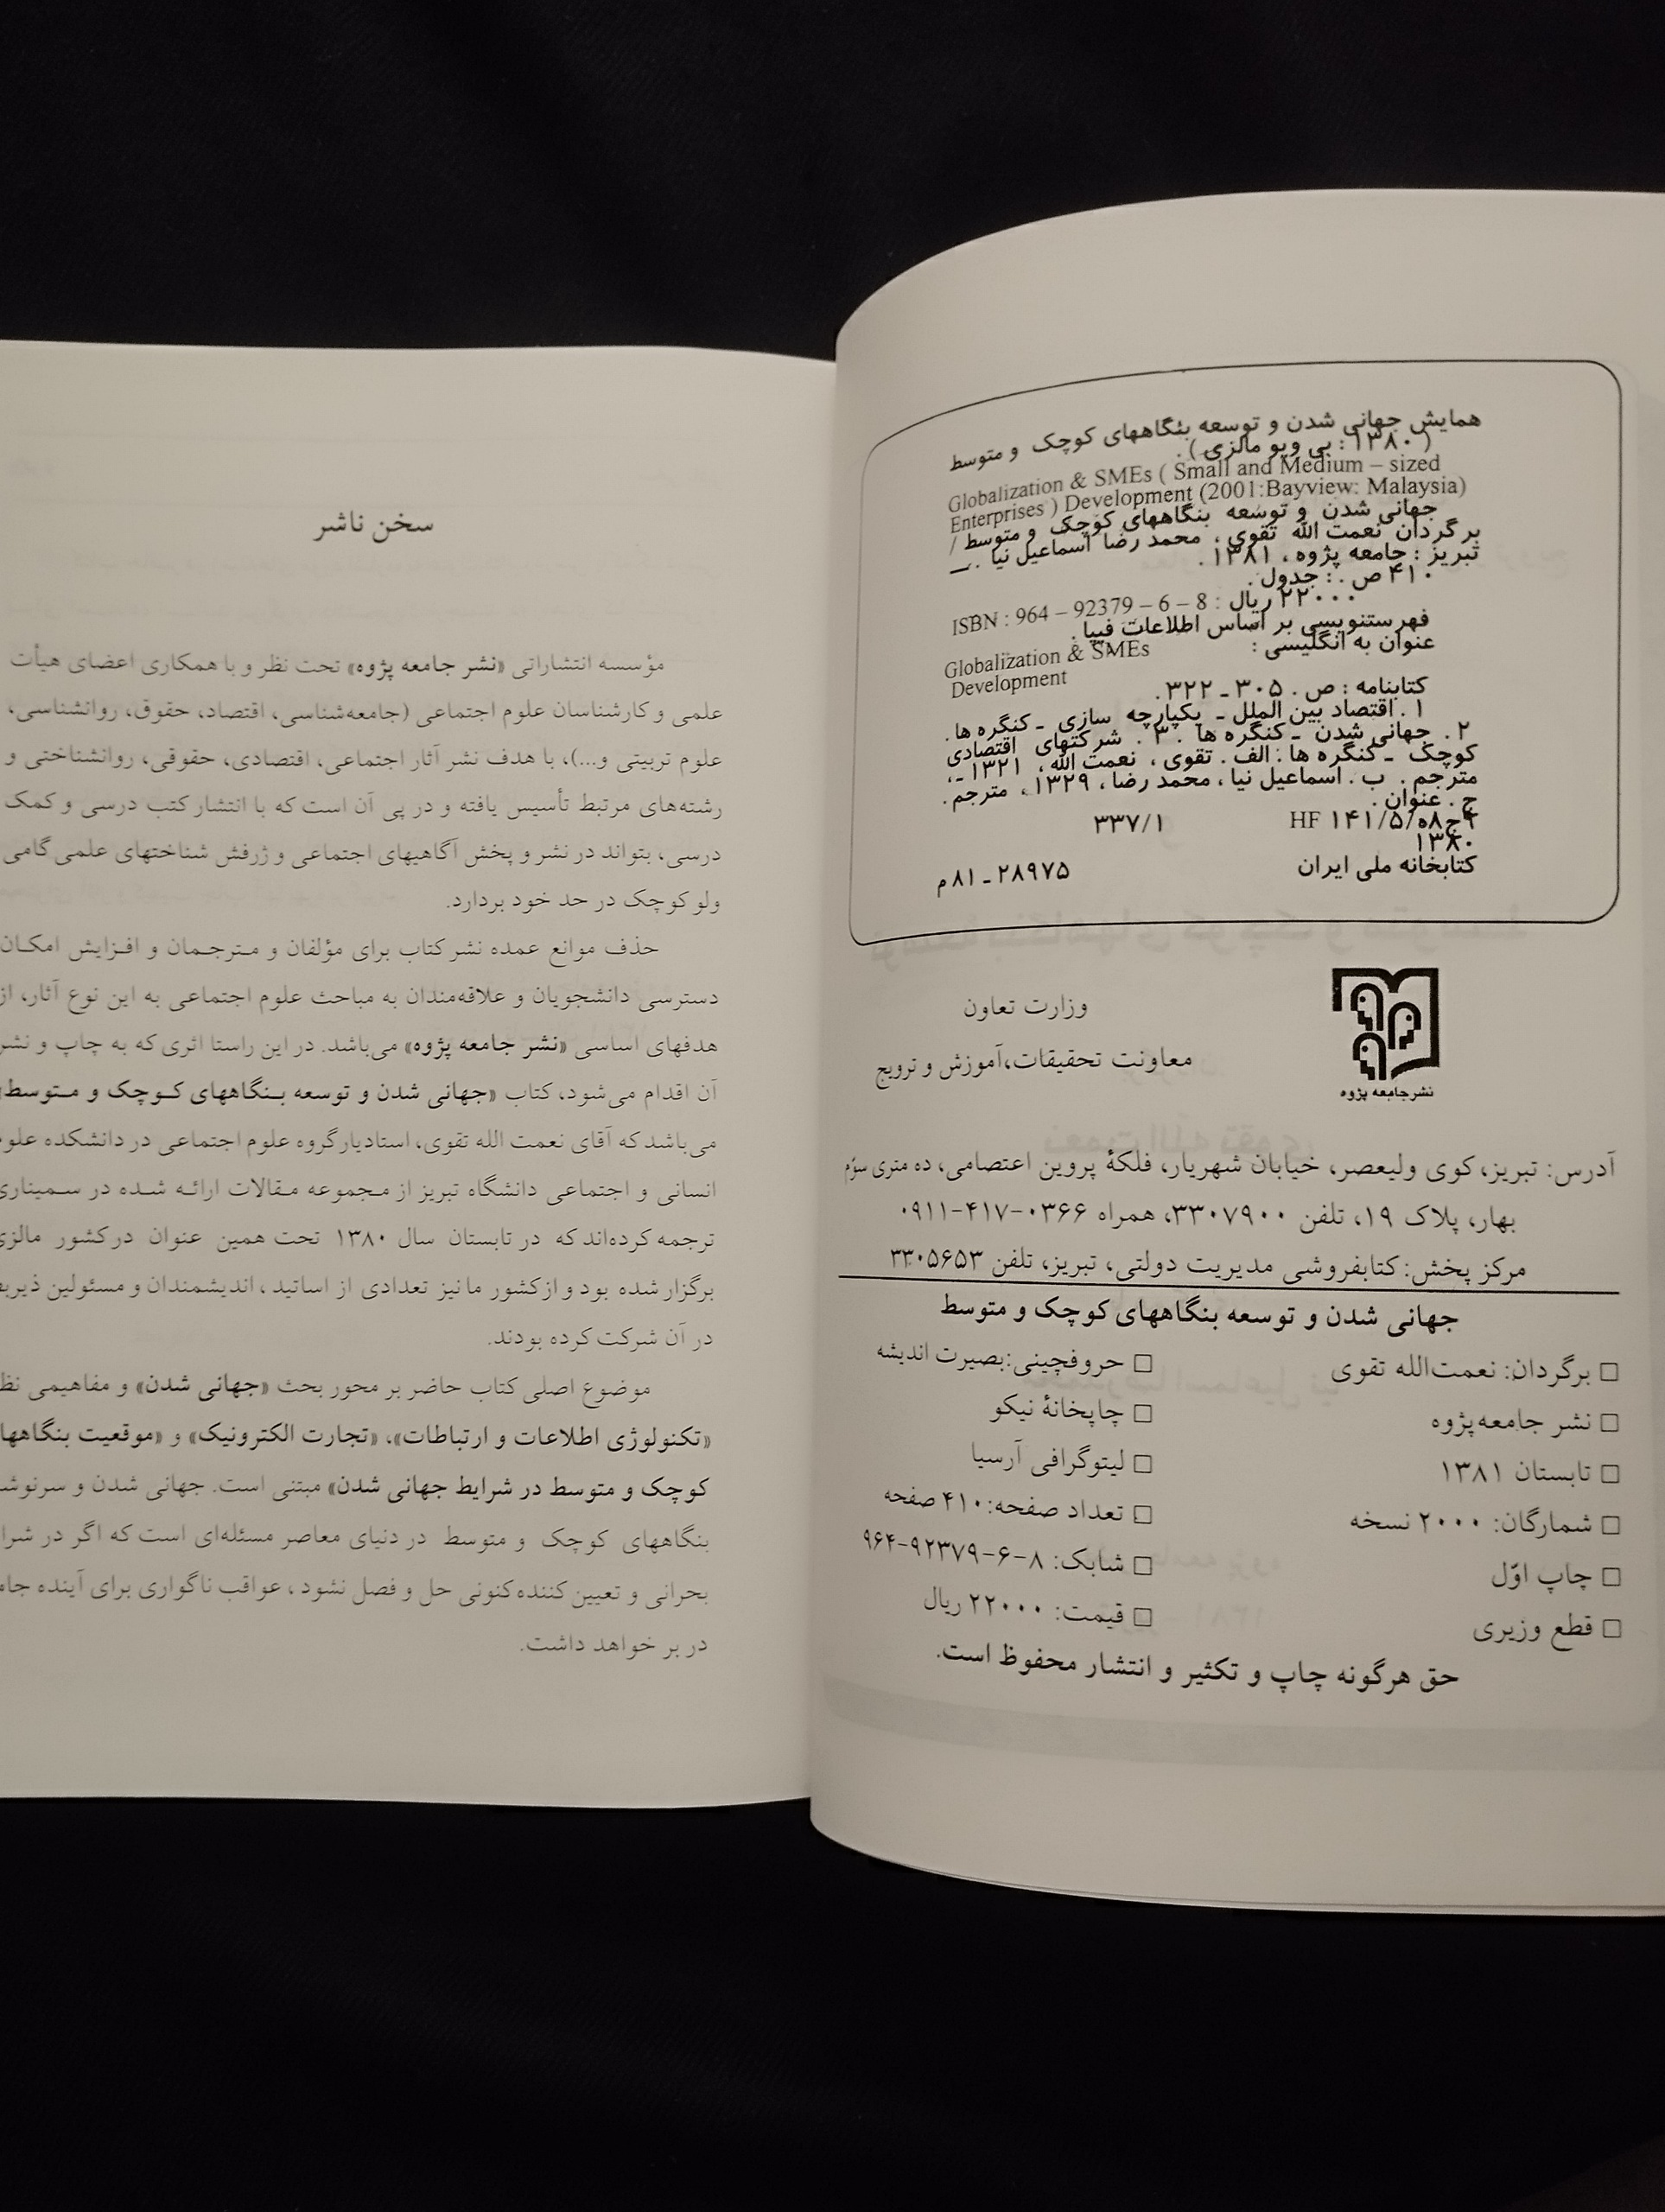 همایش جهانی شدن و توسعه بنگاههای کوچک و متوسط
( ۱۳۸۰ : بی ویو مالزی ) .
Globalization & SMEs ( Small and Medium – sized
Enterprises ) Development (2001:Bayview: Malaysia)
جهانی شدن و توسعه بنگاههای کوچک و متوسط /
برگردان نعمت الله تقوی ، محمد رضا اسماعیل نیا . ـــ
تبریز : جامعه پژوه ، ۱۳۸۱ .
۴۱۰ ص . : جدول .
ISBN : 964 – 92379 – 6 – 8 : ۲۲۰۰۰ ریال
فهرستنویسی بر اساس اطلاعات فیپا .
عنوان به انگلیسی : Globalization & SMEs
Development
کتابنامه : ص . ۳۰۵ ـ ۳۲۲ .
۱ . اقتصاد بین الملل ـ یکپارچه سازی ـ کنگره ها .
۲ . جهانی شدن ـ کنگره ها . ۳ . شرکتهای اقتصادی
کوچک ـ کنگره ها : الف . تقوی ، نعمت الله ، ۱۳۲۱ ـ ،
مترجم . ب . اسماعیل نیا ، محمد رضا ، ۱۳۲۹ ، مترجم .
ج . عنوان .
۳۳۷/۱ HF ۱۴۱/۵/
۱۳۸۰
کتابخانه ملی ایران ۲۸۹۷۵ ـ ۸۱ م
نشر جامعه پژوه
وزارت تعاون
معاونت تحقیقات،آموزش و ترویج
آدرس: تبریز، کوی ولیعصر، خیابان شهریار، فلکهٔ پروین اعتصامی، ده متری سوّم
بهار، پلاک ۱۹، تلفن ۳۳۰۷۹۰۰، همراه ۰۳۶۶-۴۱۷-۰۹۱۱
مرکز پخش: کتابفروشی مدیریت دولتی، تبریز، تلفن ۳۳۰۵۶۵۳
جهانی شدن و توسعه بنگاههای کوچک و متوسط
□ برگردان: نعمت‌الله تقوی
□ نشر جامعه‌پژوه
□ تابستان ۱۳۸۱
□ شمارگان: ۲۰۰۰ نسخه
□ چاپ اوّل
□ قطع وزیری
□ حروفچینی:بصیرت اندیشه
□ چاپخانهٔ نیکو
□ لیتوگرافی آرسیا
□ تعداد صفحه:۴۱۰ صفحه
□ شابک: ۸-۶-۹۲۳۷۹-۹۶۴
□ قیمت: ۲۲۰۰۰ ریال
حق هرگونه چاپ و تکثیر و انتشار محفوظ است.
سخن ناشر
مؤسسه انتشاراتی «نشر جامعه پژوه» تحت نظر و با همکاری اعضای هیأت
علمی و کارشناسان علوم اجتماعی (جامعه‌شناسی، اقتصاد، حقوق، روانشناسی،
علوم تربیتی و...)، با هدف نشر آثار اجتماعی، اقتصادی، حقوقی، روانشناختی و
رشته‌های مرتبط تأسیس یافته و در پی آن است که با انتشار کتب درسی و کمک
درسی، بتواند در نشر و پخش آگاهیهای اجتماعی و ژرفش شناختهای علمی گامی
ولو کوچک در حد خود بردارد.
حذف موانع عمده نشر کتاب برای مؤلفان و مترجمان و افزایش امکان
دسترسی دانشجویان و علاقه‌مندان به مباحث علوم اجتماعی به این نوع آثار، از
هدفهای اساسی «نشر جامعه پژوه» می‌باشد. در این راستا اثری که به چاپ و نشر
آن اقدام می‌شود، کتاب «جهانی شدن و توسعه بنگاههای کوچک و متوسط»
می‌باشد که آقای نعمت الله تقوی، استادیار گروه علوم اجتماعی در دانشکده علوم
انسانی و اجتماعی دانشگاه تبریز از مجموعه مقالات ارائه شده در سمیناری
ترجمه کرده‌اند که در تابستان سال ۱۳۸۰ تحت همین عنوان در کشور مالزی
برگزار شده بود و از کشور ما نیز تعدادی از اساتید، اندیشمندان و مسئولین
در آن شرکت کرده بودند.
موضوع اصلی کتاب حاضر بر محور بحث «جهانی شدن» و مفاهیمی
«تکنولوژی اطلاعات و ارتباطات»، «تجارت الکترونیک» و «موقعیت
کوچک و متوسط در شرایط جهانی شدن» مبتنی است. جهانی شدن و
بنگاههای کوچک و متوسط در دنیای معاصر مسئله‌ای است که اگر در
بحرانی و تعیین کننده کنونی حل و فصل نشود، عواقب ناگواری برای آینده
در بر خواهد داشت.